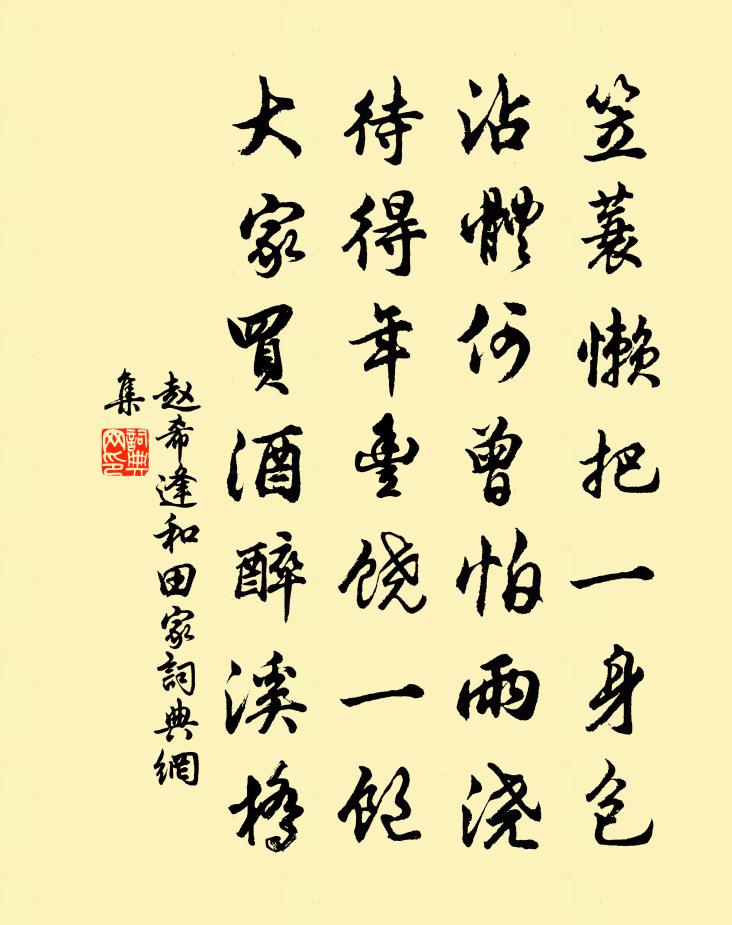 笠蓑懒把一身包
沾體何曾怕雨浇
待得年豊饶一饱
大家買酒醉溪橋
赵希逢和田家詞典網
集
詞典
网印